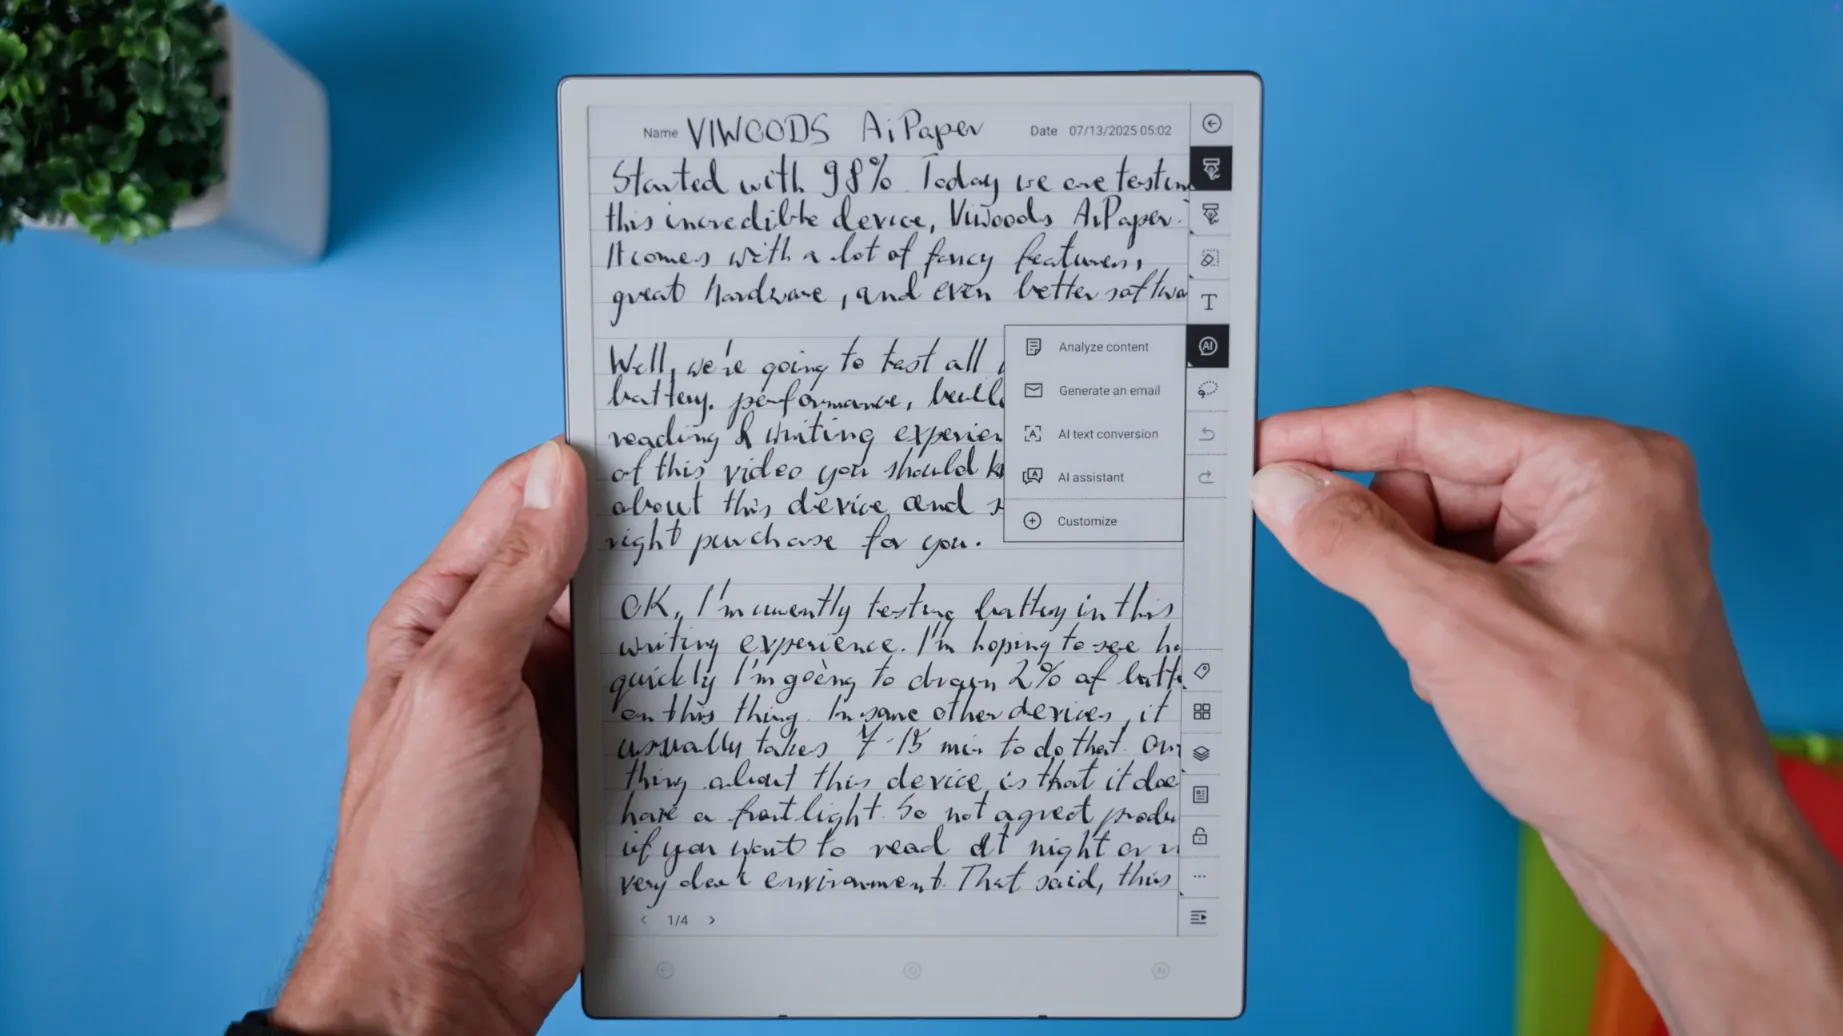 Name VIWOODS AiPaper Date 07/13/2025 05:02
Started with 98%. Today we are testin
this incredible device, Viwoods AiPaper.
It comes with a lot of fancy features,
great hardware, and even better softwa
Well, we're going to test all
battery, performance, build
reading & writing experien
of this video you should k
about this device and s
right purchase for you.
Analyze content
Generate an email
AI text conversion
AI assistant
Customize
OK, I'm currently testing battery in this
writing experience. I'm hoping to see ho
quickly I'm going to drain 2% of batt
on this thing. In some other devices, it
usually takes 7-15 min to do that. On
thing about this device is that it doe
have a frontlight. So not a great produ
if you want to read at night or
very environment. That said, this
1/4
T
AI
AI